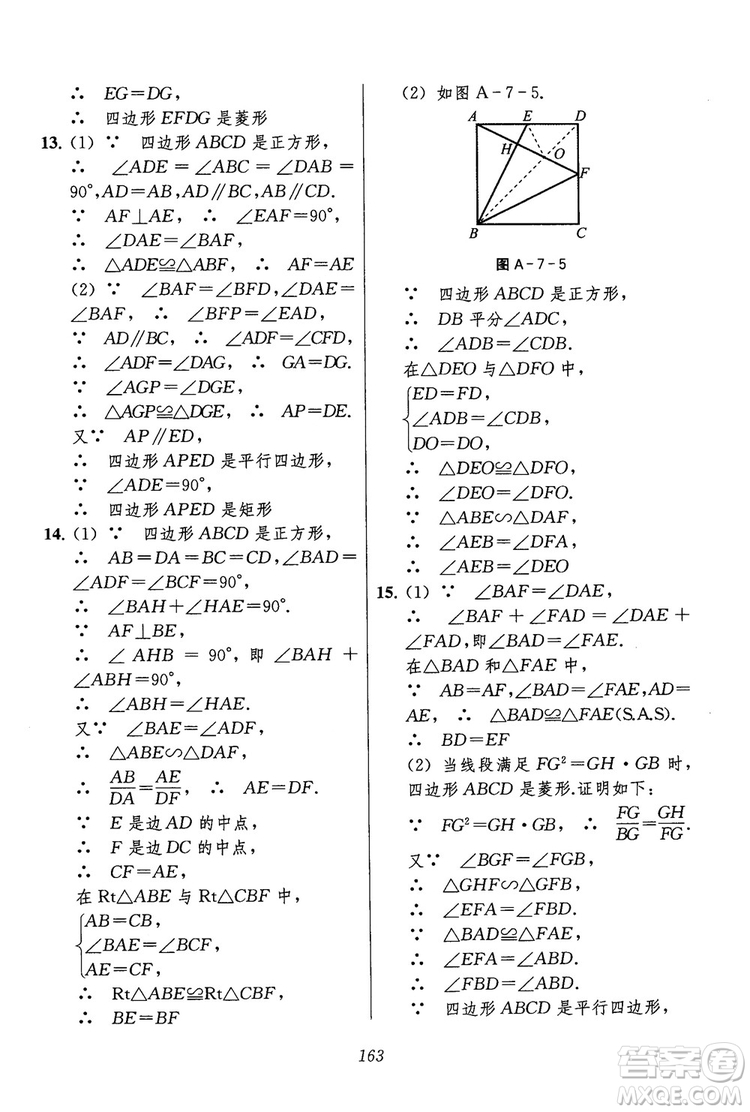 ∴ EG=DG，
∴ 四边形 EFDG 是菱形
13. (1) ∵ 四边形 ABCD 是正方形，
∴ ∠ADE=∠ABC=∠DAB=
90°，AD=AB，AD∥BC，AB∥CD.
∵ AF⊥AE， ∴ ∠EAF=90°，
∴ ∠DAE=∠BAF，
∴ △ADE≌△ABF， ∴ AF=AE
(2) ∵ ∠BAF=∠BFD，∠DAE=
∠BAF， ∴ ∠BFP=∠EAD，
∵ AD∥BC， ∴ ∠DAF=∠CFD，
∴ ∠ADF=∠DAG， ∴ GA=DG.
∵ ∠AGP=∠DGE，
∴ △AGP≌△DGE， ∴ AP=DE.
又∵ AP∥ED，
∴ 四边形 APED 是平行四边形，
∵ ∠ADE=90°，
∴ 四边形 APED 是矩形
14. (1) ∵ 四边形 ABCD 是正方形，
∴ AB=DA=BC=CD，∠BAD=
∠ADF=∠BCF=90°，
∴ ∠BAH+∠HAE=90°.
∵ AF⊥BE，
∴ ∠AHB = 90°，即 ∠BAH +
∠ABH=90°，
∴ ∠ABH=∠HAE.
又∵ ∠BAE=∠ADF，
∴ △ABE∽△DAF，
∴ AB/DA=AE/DF， ∴ AE=DF.
∵ E 是边 AD 的中点，
∴ F 是边 DC 的中点，
∴ CF=AE，
在 Rt△ABE 与 Rt△CBF 中，
AB=CB，
∠BAE=∠BCF，
AE=CF，
∴ Rt△ABE≌Rt△CBF，
∴ BE=BF
(2) 如图 A-7-5.
A E D
H O F
B C
图 A-7-5
∵ 四边形 ABCD 是正方形，
∴ DB 平分∠ADC，
∴ ∠ADB=∠CDB.
在△DEO 与△DFO 中，
ED=FD，
∠ADB=∠CDB，
DO=DO，
∴ △DEO≌△DFO，
∴ ∠DEO=∠DFO.
∵ △ABE∽△DAF，
∴ ∠AEB=∠DFA，
∴ ∠AEB=∠DEO
15. (1) ∵ ∠BAF=∠DAE，
∴ ∠BAF + ∠FAD = ∠DAE +
∠FAD，即∠BAD=∠FAE.
在△BAD 和△FAE 中，
∵ AB=AF，∠BAD=∠FAE，AD=
AE， ∴ △BAD≌△FAE(S.A.S).
∴ BD=EF
(2) 当线段满足 FG²=GH·GB 时，
四边形 ABCD 是菱形.证明如下：
∵ FG²=GH·GB， ∴ FG/BG=GH/FG.
又∵ ∠BGF=∠FGB，
∴ △GHF∽△GFB，
∴ ∠EFA=∠FBD.
∵ △BAD≌△FAE，
∴ ∠EFA=∠ABD.
∴ ∠FBD=∠ABD.
∵ 四边形 ABCD 是平行四边形，
163
答案圈
MXQE.COM